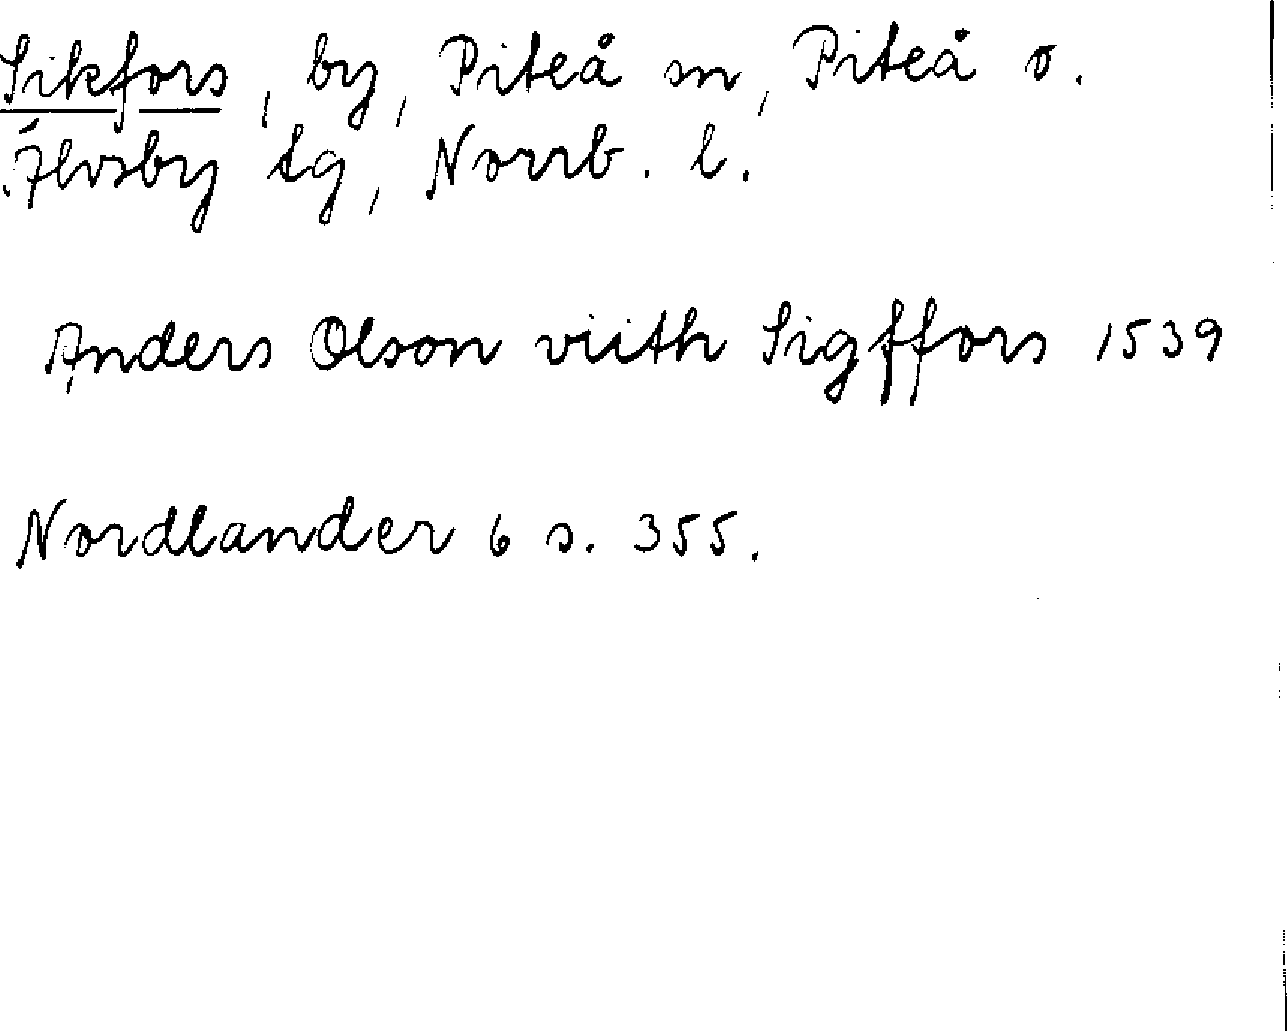 Sikfors, by, Piteå sn, Piteå o.
Älvsby tg, Norrb. l.
Anders Olson viith Sigffors 1539
Nordlander 6 s. 355.